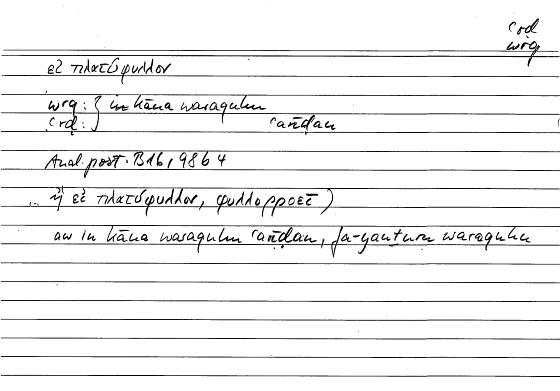 ʿrḍ
wrq
εἰ πλατύφυλλον
wrq : } in kāna waraquhu
ʿrḍ : } ʿarīḍan
Anal. post. B 16, 98 b 4
... ἢ εἰ πλατύφυλλον, φυλλορροεῖ )
aw in kāna waraquhu ʿarīḍan, fa-yanturu waraquhu